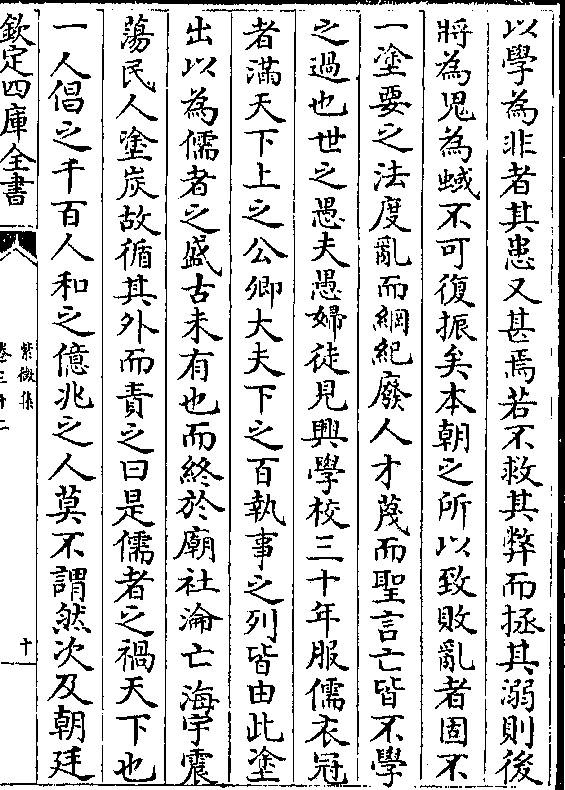 以學為非者其患又甚焉若不救其弊而拯其溺則後
將為鬼為蜮不可復振矣本朝之所以致敗亂者固不
一塗要之法度亂而綱紀廢人才蔑而聖言亡皆不學
之過也世之愚夫愚婦徒見興學校三十年服儒衣冠
者滿天下上之公卿大夫下之百執事之列皆由此塗
出以為儒者之盛古未有也而終於廟社淪亡海宇震
蕩民人塗炭故循其外而責之曰是儒者之禍天下也
一人倡之千百人和之億兆之人莫不謂然次及朝廷
欽定四庫全書
紫微集
卷三十二
十